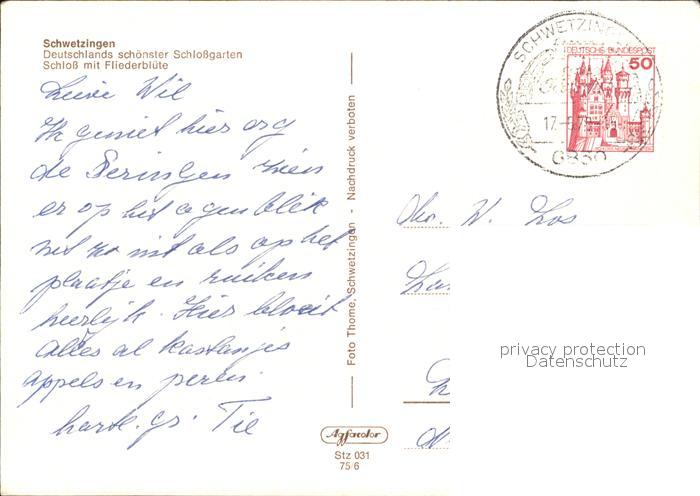 Schwetzingen
Deutschlands schönster Schloßgarten
Schloß mit Fliederblüte
Lieve Wil
Ik geniet hier erg
de Seringen zien
er op het ogenblik
net zo uit als op het
plaatje en ruiken
heerlijk. Hier bloeit
alles al kastanjes
appels en peren.
hart. gr. Til
Foto Thome, Schwetzingen - Nachdruck verboten
Agfacolor
Stz 031
75 6
SCHWETZINGEN
DEUTSCHE BUNDESPOST
50
6830
W.
privacy protection
Datenschutz